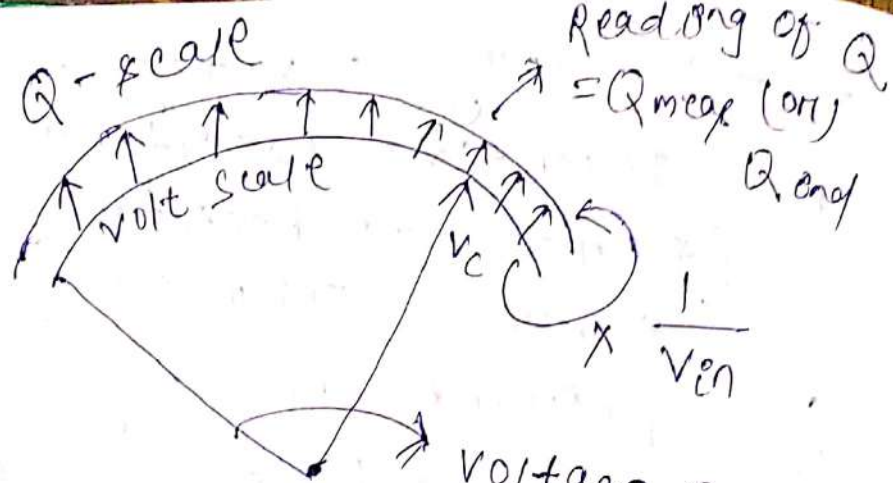 Q - scale
Reading of Q
= Qmeas (or)
Q ind
volt scale
Vc
× 1
Vin
Voltage